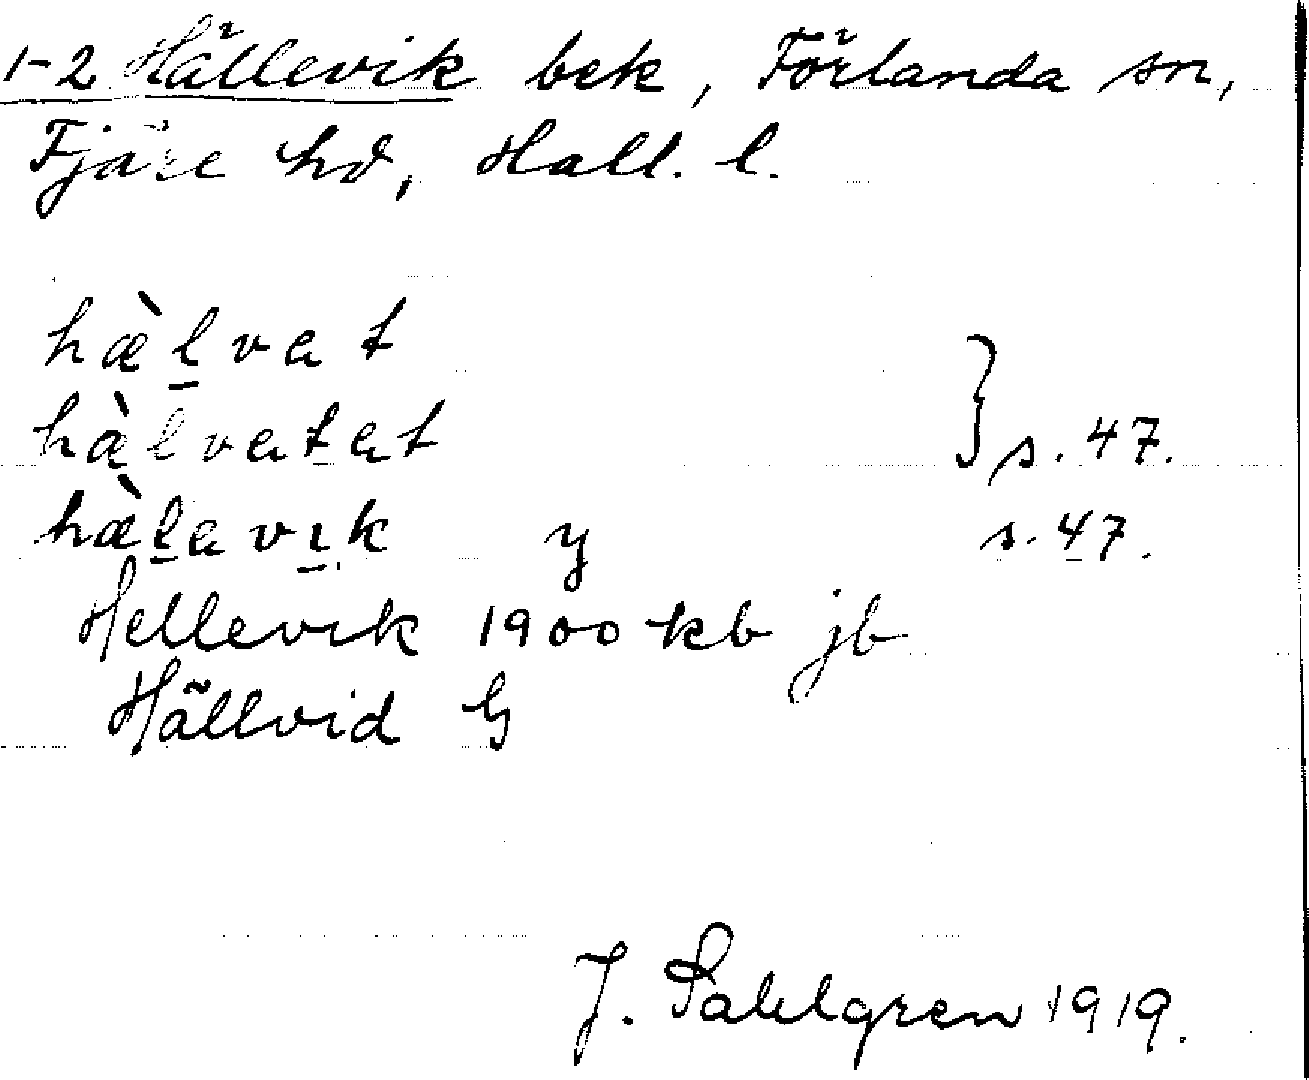 1-2 Hällevik bek, Förlanda sn,
Fjäre hd, Hall. l.
hæ̀l̲vat
hæ̀lvatat } s. 47.
hæ̀l̲avı̲k y s. 47.
Hellevik 1900 kb jb
Hällvid G
J. Sahlgren 1919.